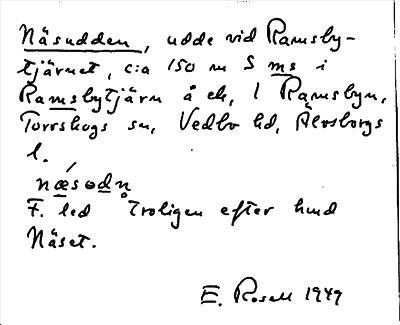 Näsudden, udde vid Ramsby-
tjärnet, c:a 150 m S ms i
Ramsbytjärn å ek, 1 Ramsbyn,
Torrskogs sn, Vedbo hd, Älvsborgs
l.
næ´sɵdn̥
F. led Troligen efter hmd
Näset.
E. Rosell 1949